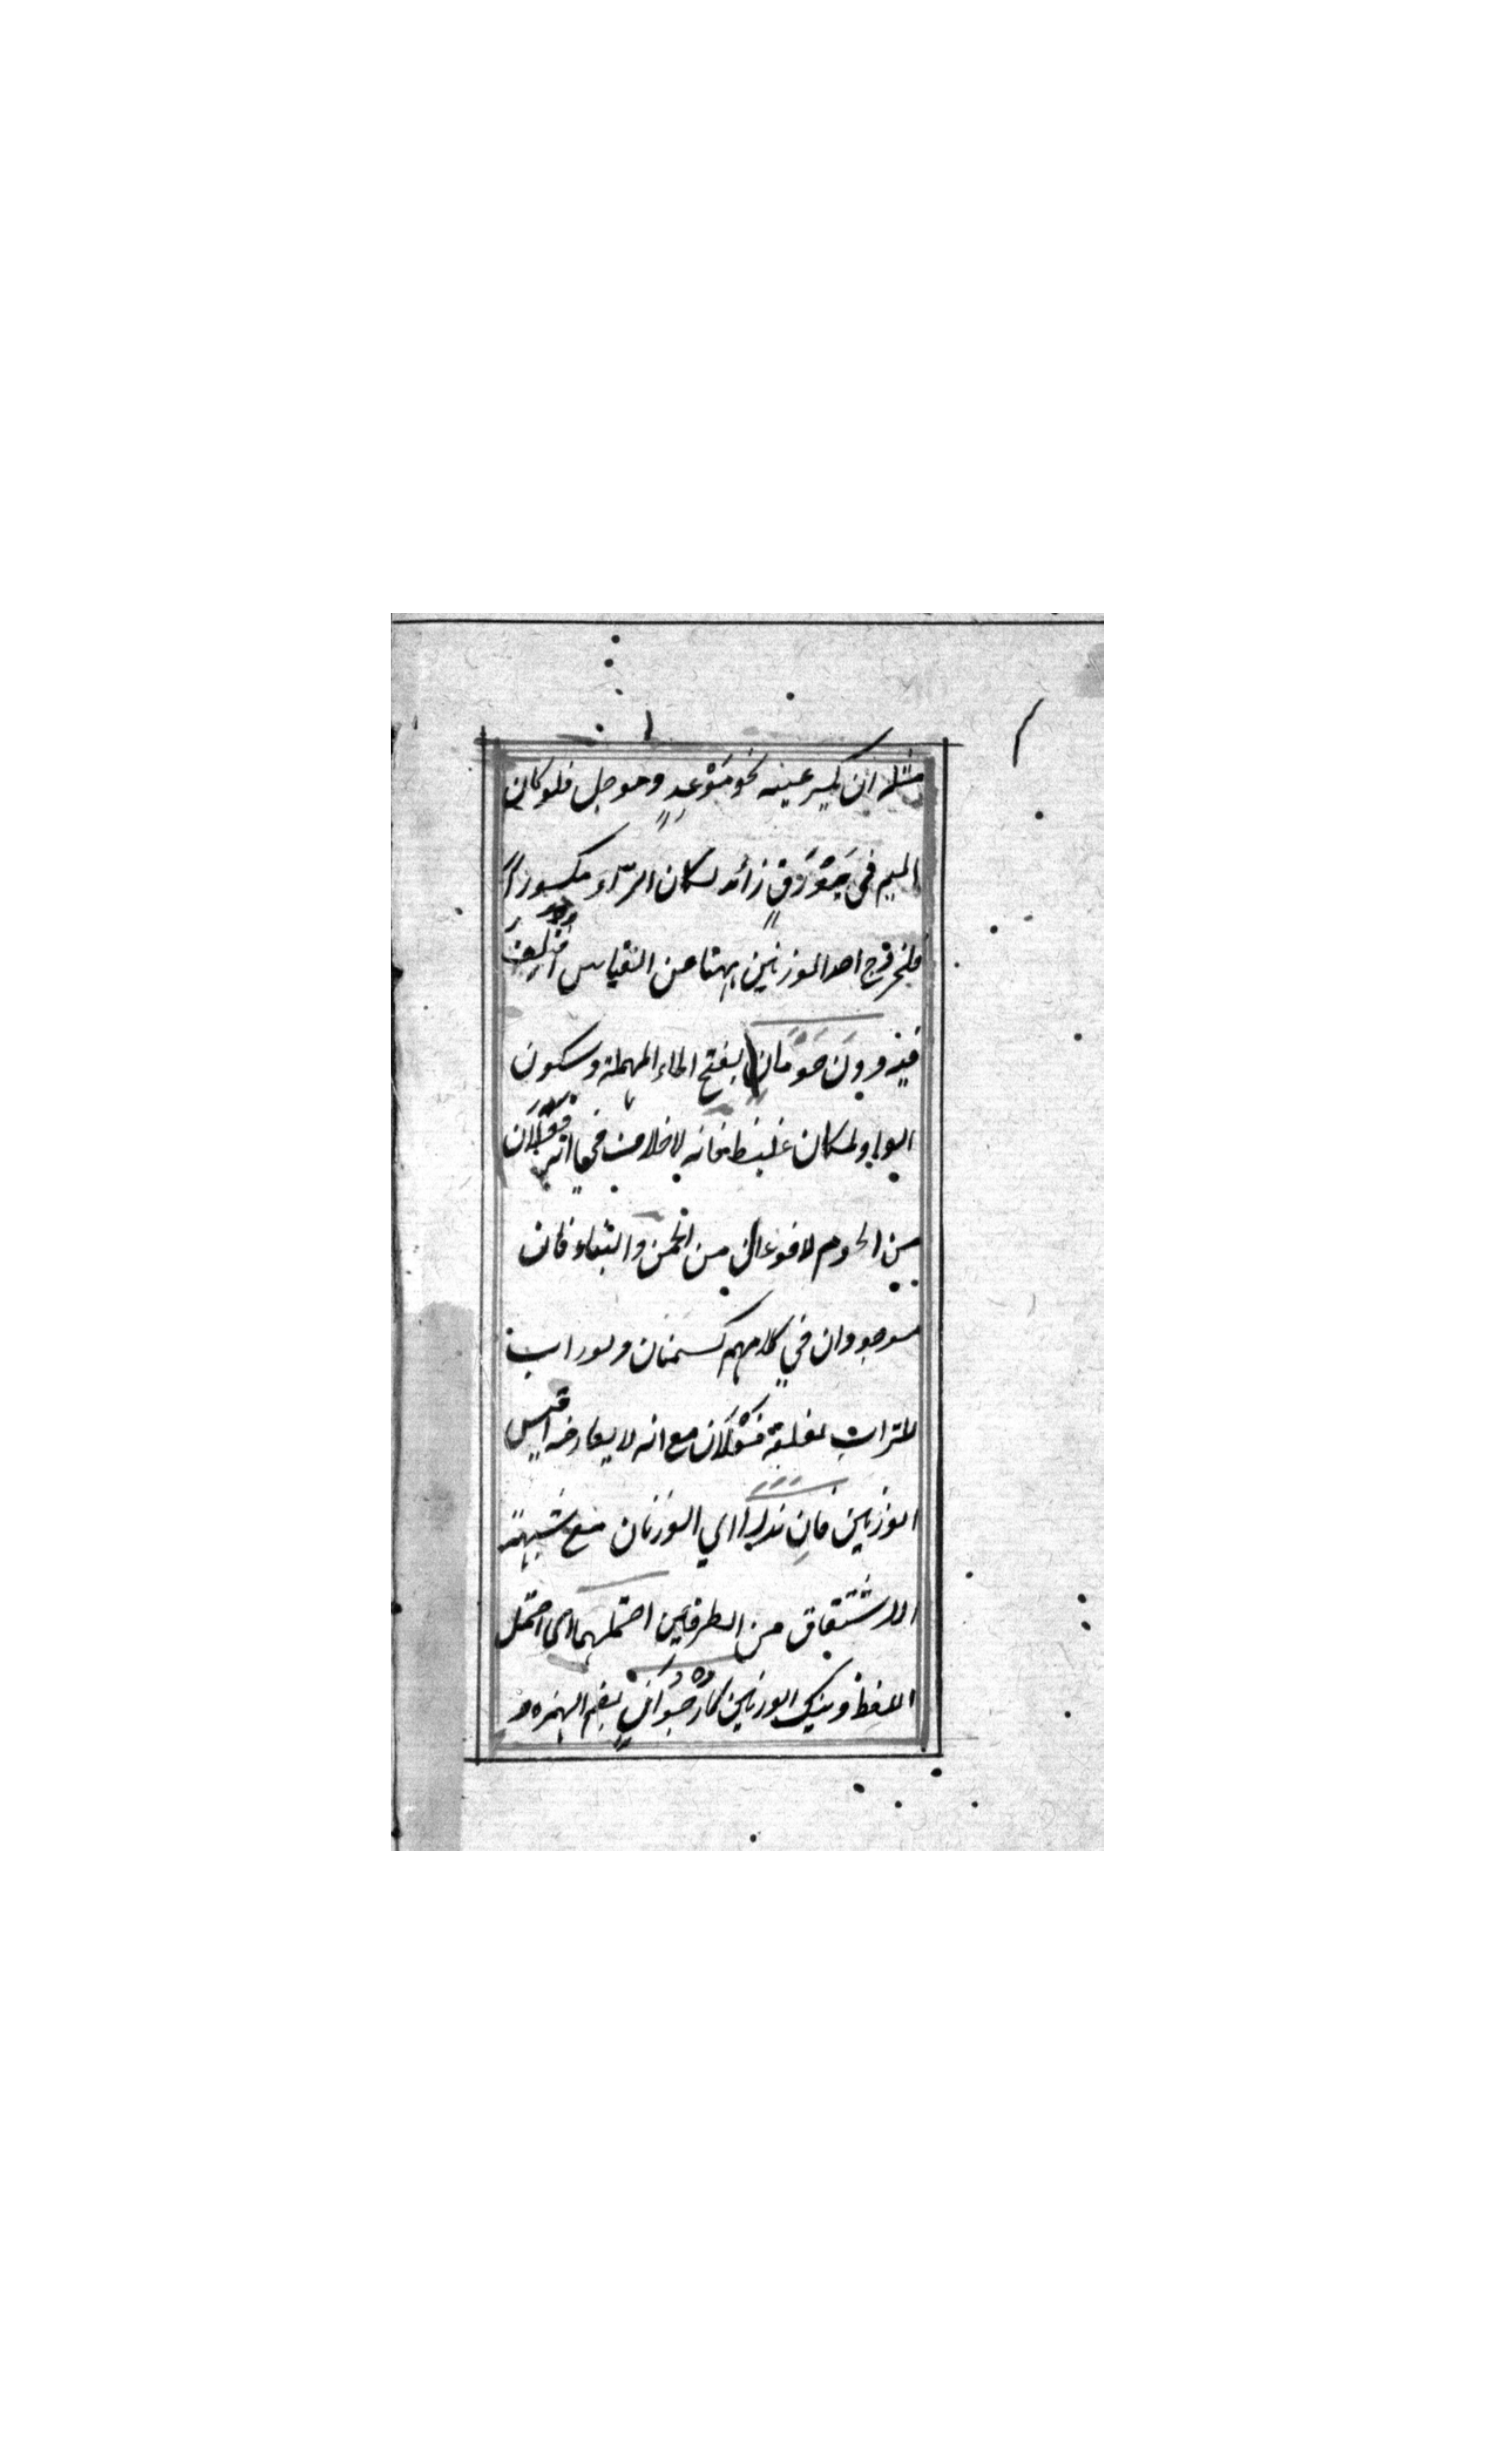 مثله ان يكسر عينه نحو مَوْعِدٍ وموجل فلو كان
الميم في مَوْرَقٍ زائد لكان الرّاء مكسوراً
فلخروج احد الوزنين بهتا عن القياس اختلف
فيه ودون حَوْمَان بفتح الحاء المهملة وسكون
الواو لمكان غليظ فانه لا خلاف في انه فَعْلَان
من الحوم لا فوعال من الحمن والبناء فان
موجودان في كلامهم كسمنان وتوراب
للتراب لغلبة فَعْلَان مع انه لا يعارضه اقيس
الوزنين فان ندرا اي الوزنان مع شبهة
الاشتقاق من الطرفين احتملهما اي احتمل
اللفظ ذينك الوزنين كاُرْجُوَانٍ بضم الهمزه و